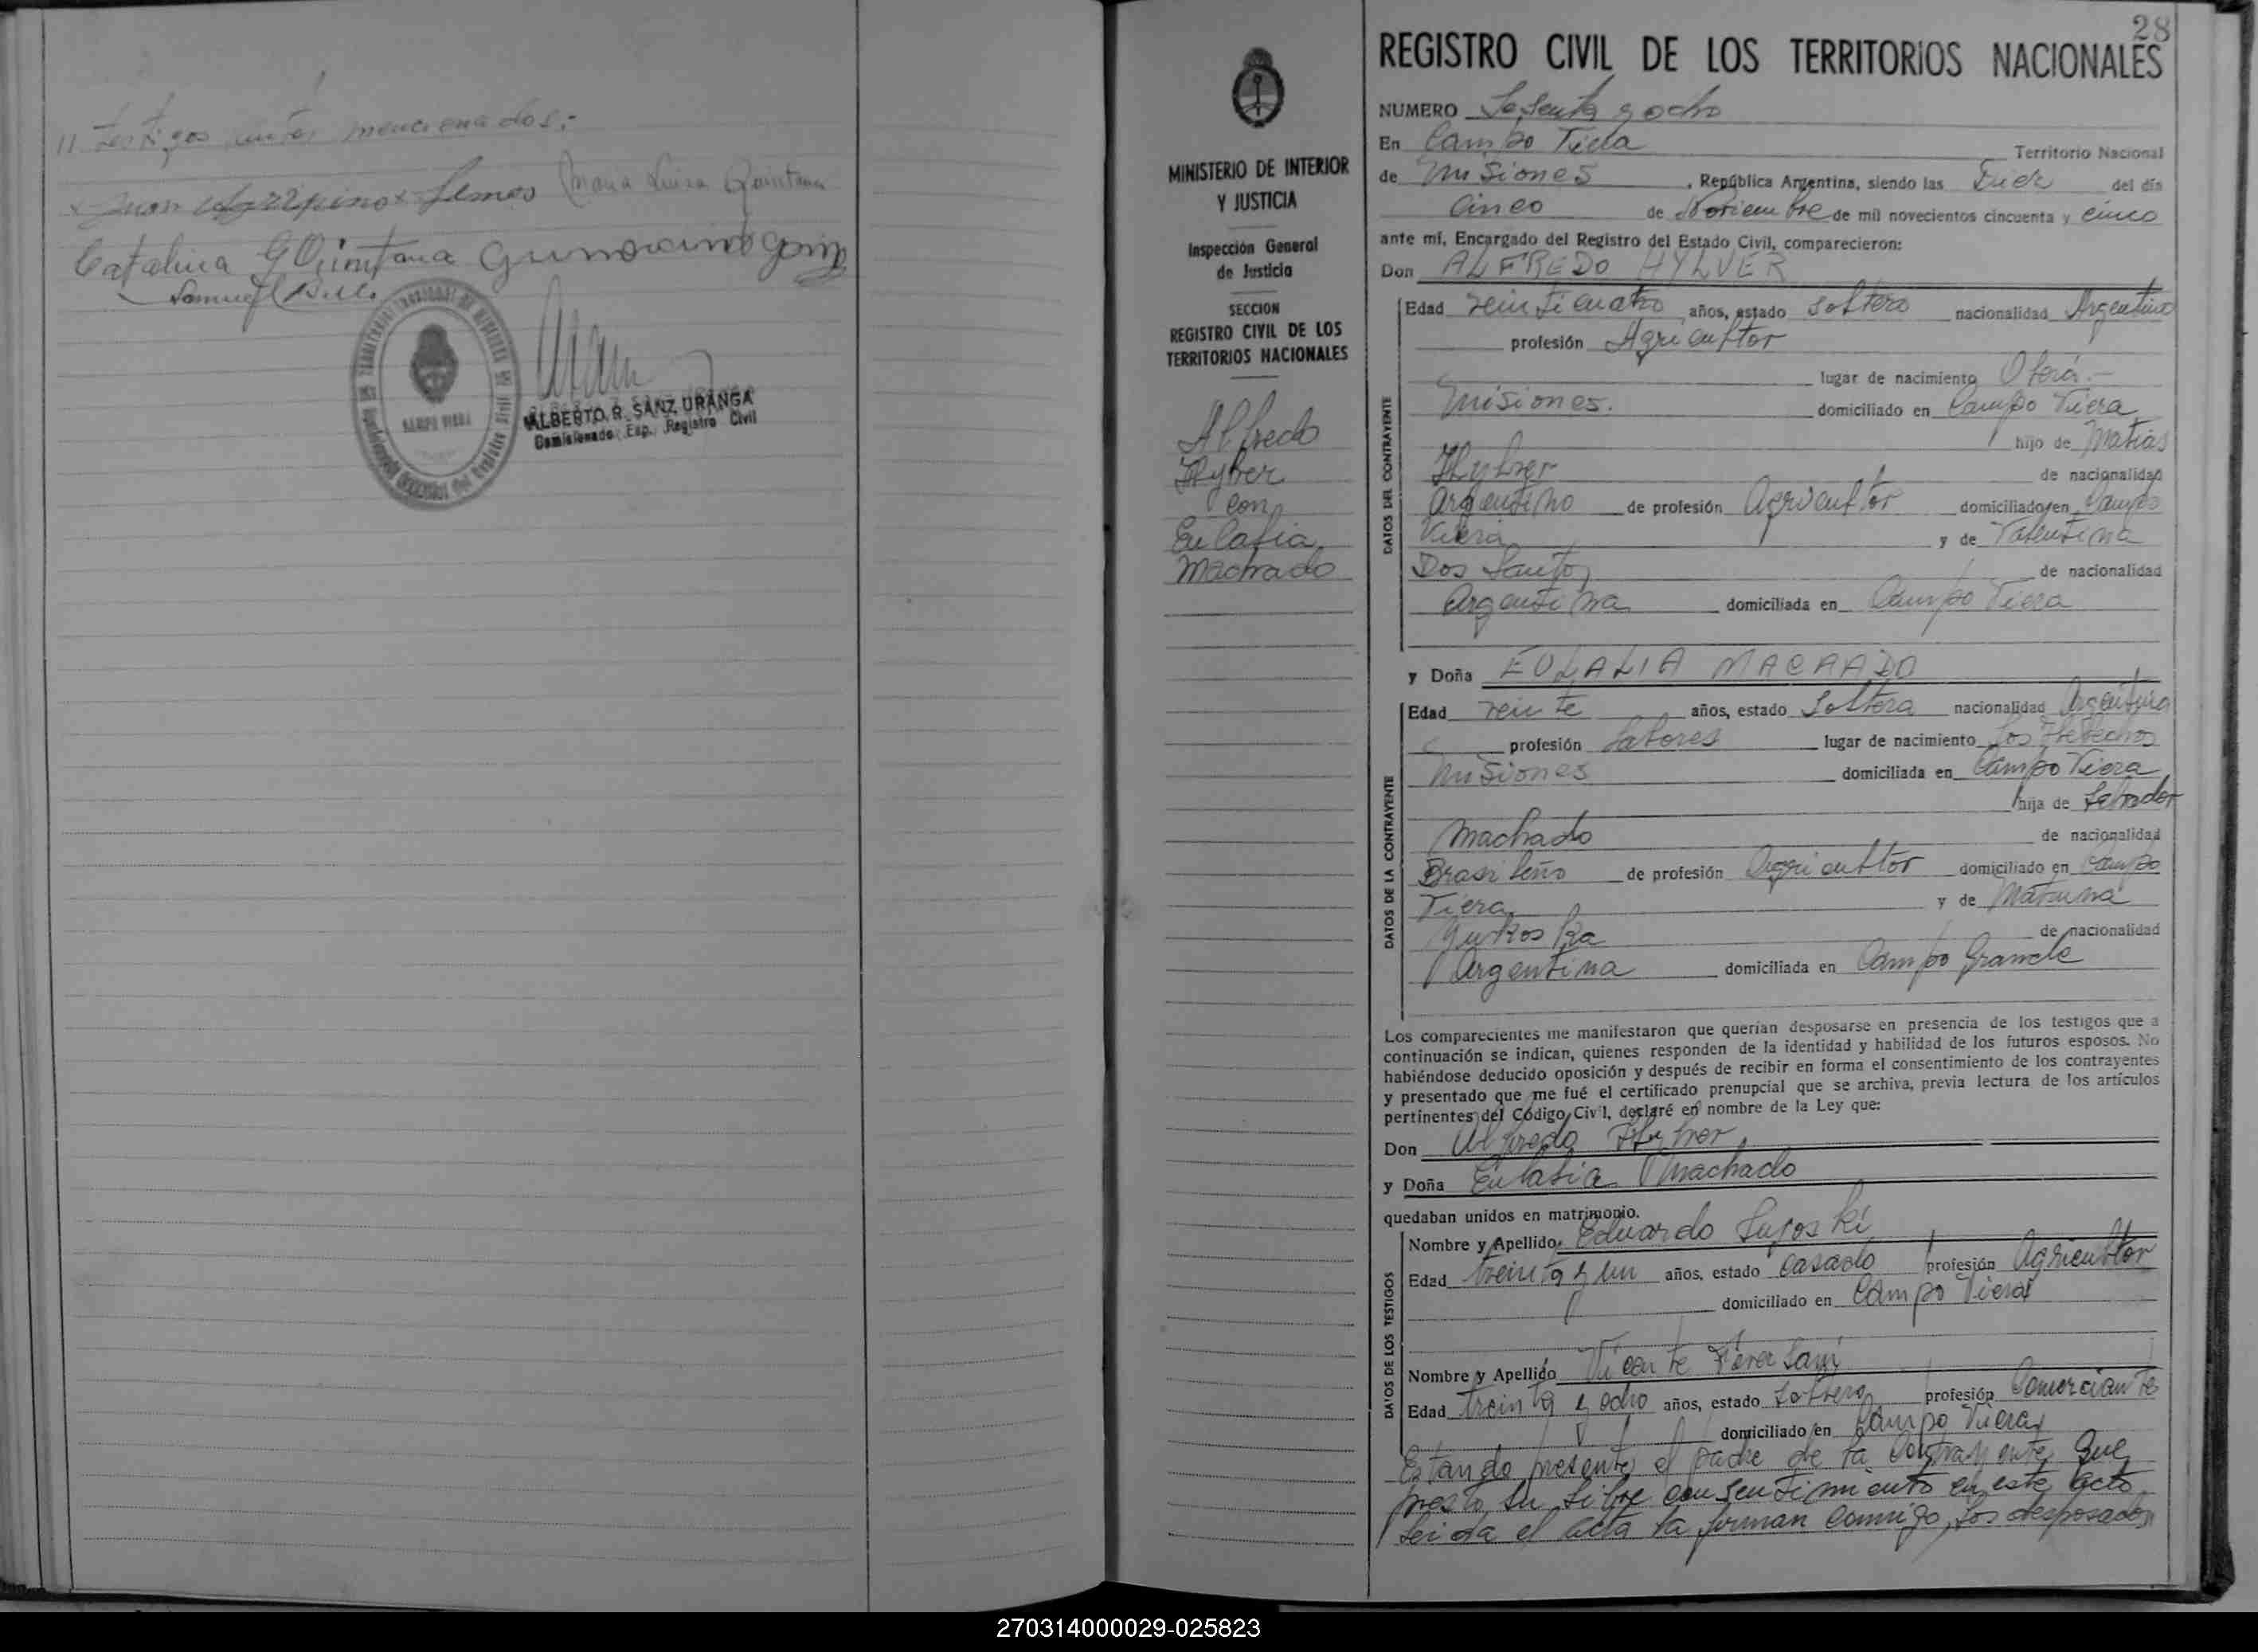 11 testigos antes mencionados:-
x Juan Agripino x Lemos Maria Luisa Quintana
Catalina G Quintana Gumercindo Gomez
Samuel
CAMPO VIERA
ALBERTO R. SANZ URANGA
Comisionado Esp. Registro Civil
MINISTERIO DE INTERIOR
Y JUSTICIA
Inspección General
de Justicia
SECCION
REGISTRO CIVIL DE LOS
TERRITORIOS NACIONALES
Alfredo
Hylver
con
Eulalia
Machado
28
REGISTRO CIVIL DE LOS TERRITORIOS NACIONALES
NUMERO Sesenta y ocho
En Campo Viera Territorio Nacional
de Misiones, República Argentina, siendo las Diez del día
Cinco de Noviembre de mil novecientos cincuenta y cinco
ante mí, Encargado del Registro del Estado Civil, comparecieron:
Don ALFREDO HYLVER
DATOS DEL CONTRAYENTE
Edad veinticuatro años, estado soltero nacionalidad Argentino
profesión Agricultor
lugar de nacimiento Oberá.-
Misiones. domiciliado en Campo Viera
hijo de Matias
Hylver de nacionalidad
Argentino de profesión Agricultor domiciliado en Campo
Viera y de Valentina
Dos Santos de nacionalidad
Argentina domiciliada en Campo Viera
y Doña EULALIA MACHADO
DATOS DE LA CONTRAYENTE
Edad veinte años, estado Soltera nacionalidad Argentina
profesión Labores lugar de nacimiento Los Helechos
Misiones domiciliada en Campo Viera
hija de
Machado de nacionalidad
Brasileño de profesión Agricultor domiciliado en Campo
Viera y de
de nacionalidad
Argentina domiciliada en Campo Grande
Los comparecientes me manifestaron que querían desposarse en presencia de los testigos que a
continuación se indican, quienes responden de la identidad y habilidad de los futuros esposos. No
habiéndose deducido oposición y después de recibir en forma el consentimiento de los contrayentes
y presentado que me fué el certificado prenupcial que se archiva, previa lectura de los artículos
pertinentes del Código Civil, declaré en nombre de la Ley que:
Don Alfredo Hylver
y Doña Eulalia Machado
quedaban unidos en matrimonio.
DATOS DE LOS TESTIGOS
Nombre y Apellido Eduardo
Edad treinta y un años, estado casado profesión Agricultor
domiciliado en Campo Viera
Nombre y Apellido Vicente
Edad treinta y ocho años, estado soltero profesión Comerciante
domiciliado en Campo Viera
Estando presente el padre de la contrayente que
presto su libre consentimiento en este acto
Leida el acta la firman conmigo, los desposados
270314000029-025823